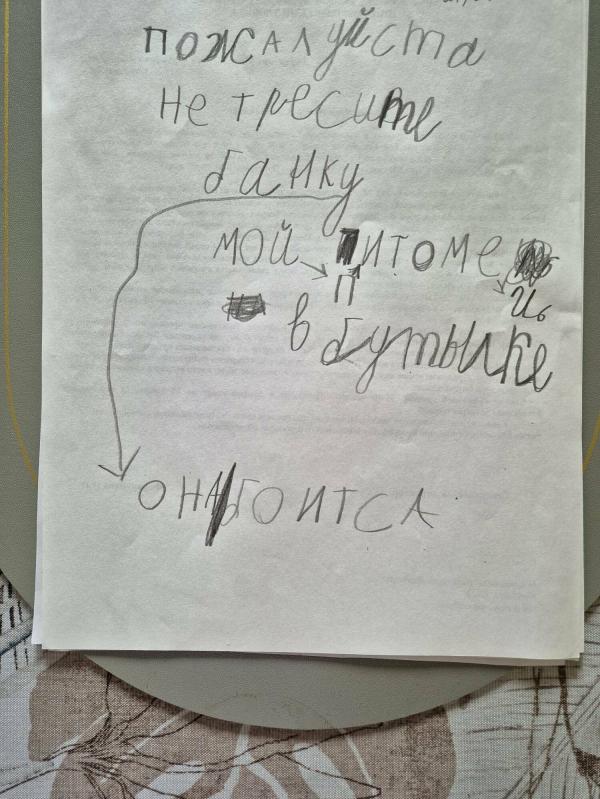 пожалуйста
не тресите
банку
мой питомец
в бутылке
она боитса